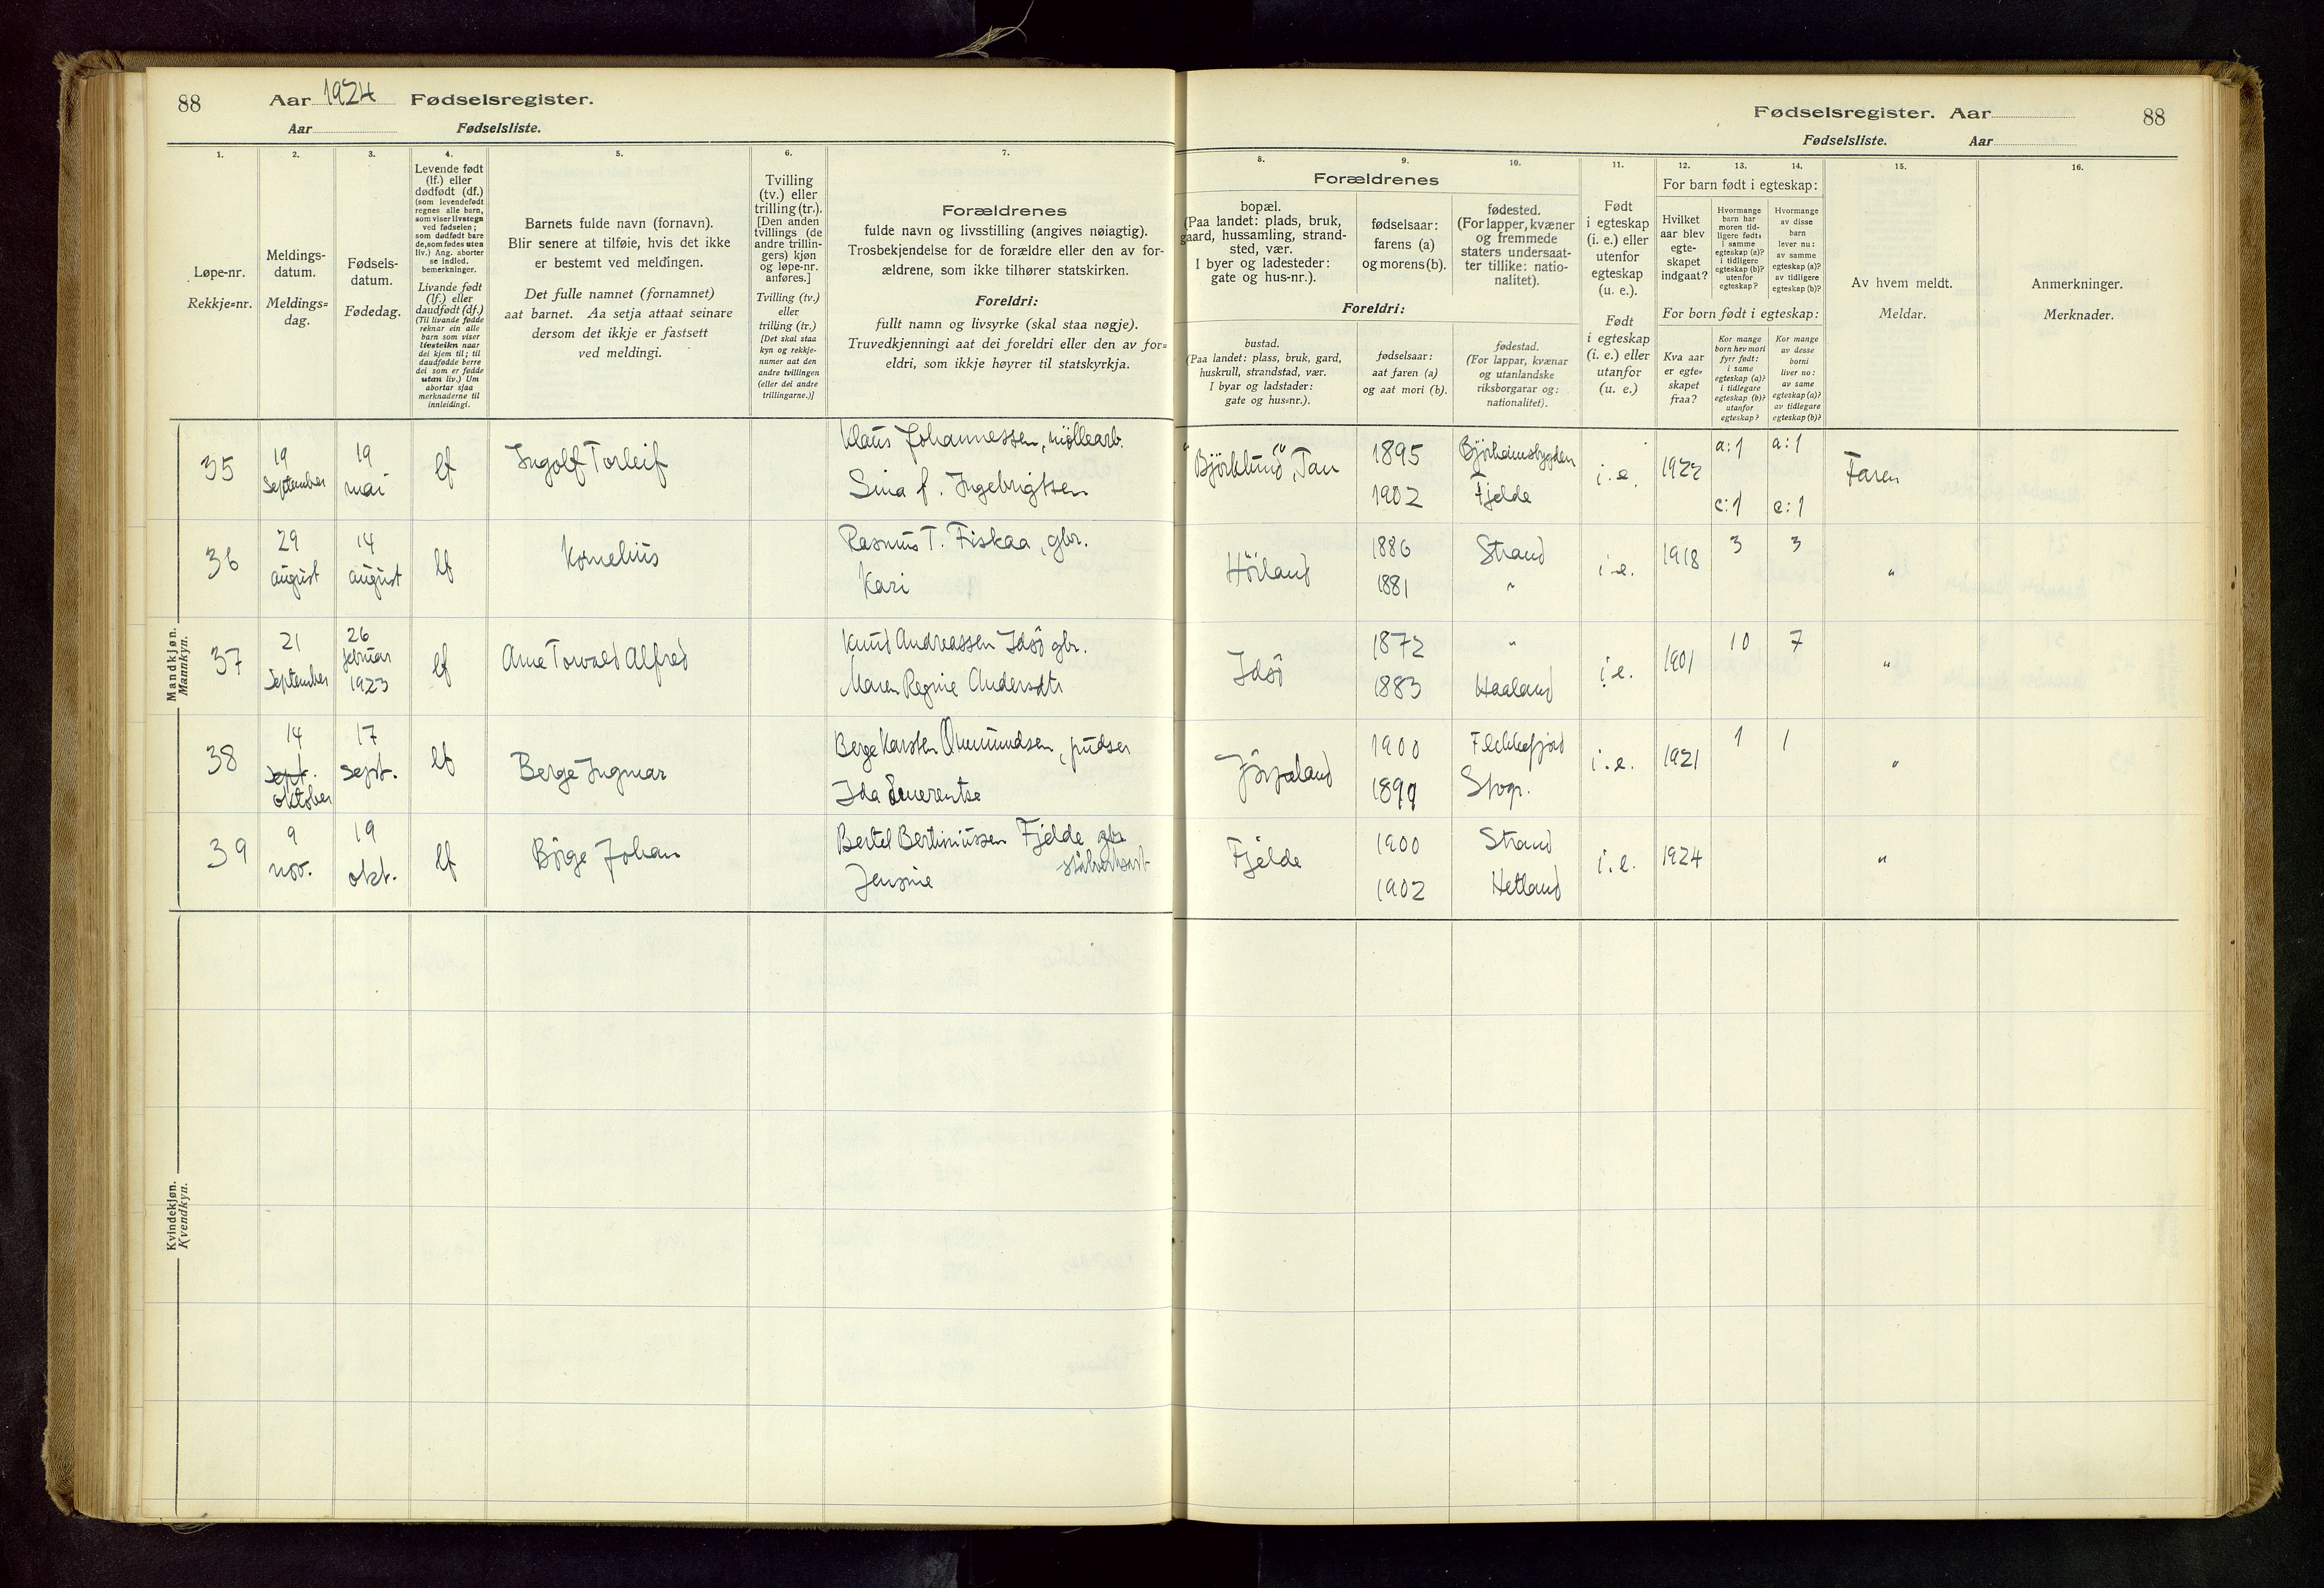 88 Aar 1924 Fødselsregister.
Aar Fødselsliste.
Fødselsregister. Aar 88
Fødselsliste. Aar
1. 2. 3. 4. 5. 6. 7.
8. 9. 10. 11. 12. 13. 14. 15. 16.
Løpe-nr.
Rekkje=nr.
Meldings-
datum.
Meldings=
dag.
Fødsels-
datum.
Fødedag.
Levende født
(lf.) eller
dødfødt (df.)
(som levendefødt
regnes alle barn,
som viser livstegn
ved fødselen;
som dødfødt bare
de, som fødes uten
liv.) Ang. aborter
se indled.
bemerkninger.
Livande født
(lf.) eller
daudfødt (df.)
(Til livande fødde
reknar ein alle
barn som viser
livsteikn naar
dei kjem til; til
daudfødde berre
dei som er fødde
utan liv.) Um
abortar sjaa
merknaderne til
innleidingi.
Barnets fulde navn (fornavn).
Blir senere at tilføie, hvis det ikke
er bestemt ved meldingen.
Det fulle namnet (fornamnet)
aat barnet. Aa setja attaat seinare
dersom det ikkje er fastsett
ved meldingi.
Tvilling
(tv.) eller
trilling (tr.).
[Den anden
tvillings (de
andre trillin-
gers) kjøn
og løpe-nr.
anføres.]
Tvilling (tv.)
eller
trilling (tr.)
[Det skal staa
kyn og rekkje-
numer aat den
andre tvillingen
(eller dei andre
trillingarne.)]
Forældrenes
fulde navn og livsstilling (angives nøiagtig).
Trosbekjendelse for de forældre eller den av for-
ældrene, som ikke tilhører statskirken.
Foreldri:
fullt namn og livsyrke (skal staa nøgje).
Truvedkjenningi aat dei foreldri eller den av for=
eldri, som ikkje høyrer til statskyrkja.
Forældrenes
bopæl.
(Paa landet: plads, bruk,
gaard, hussamling, strand-
sted, vær.
I byer og ladesteder:
gate og hus-nr.).
fødselsaar:
farens (a)
og morens (b).
fødested.
(For lapper, kvæner
og fremmede
staters undersaat-
ter tillike: natio-
nalitet).
Foreldri:
bustad.
(Paa landet: plass, bruk, gard,
huskrull, strandstad, vær.
I byar og ladstader:
gate og hus=nr.).
fødselsaar:
aat faren (a)
og aat mori (b).
fødestad.
(For lappar, kvænar
og utanlandske
riksborgarar og:
nationalitet).
Født
i egteskap
(i. e.) eller
utenfor
egteskap
(u. e.).
Født
i egteskap
(i. e.) eller
utanfor
(u. e.)
For barn født i egteskap:
Hvilket
aar blev
egte-
skapet
indgaat?
Hvormange
barn har
moren tid-
ligere født:
i samme
egteskap (a)?
i tidligere
egteskap (b)?
utenfor
egteskap?
Hvormange
av disse
barn
lever nu:
av samme
egteskap (a)?
av tidligere
egteskap (b)?
For born født i egteskap:
Kva aar
er egte=
skapet
fraa?
Kor mange
born hev mori
fyrr født:
i same
egteskap (a)?
i tidlegare
egteskap (b)?
utanfor
egteskap?
Kor mange
av desse
borni
liver no:
av same
egteskap (a)?
av tidlegare
egteskap (b)?
Av hvem meldt.
Meldar.
Anmerkninger.
Merknader.
Mandkjøn.
Mannkyn.
35
19
September
19
mai
lf
Ingolf Torleif
Klaus Johannessen, møllearb.
Sina f. Ingebrigtsen
"Björklund", Tau
1895
1902
Björheimsbygden
Fjelde
i.e.
1922
a:1 a:1
c:1 c:1
Faren
36
29
august
14
august
lf
Kornelius
Rasmus T. Fiskaa, gbr.
Kari
Höiland
1886
1881
Strand
"
i.e.
1918
3 3
"
37
21
September
26
februar
1923
lf
Arne Torvald Alfred
Knud Andreassen Idsö gbr.
Maren Regine Andersdtr
Idsö
1872
1883
"
Haaland
i.e.
1901
10 7
"
38
14
sept.
oktober
17
sept.
lf
Berge Ingmar
Berge Karsten Ommundsen, pudser
Ida
Jörpeland
1900
1899
Flekkefjord
i.e.
1921
1 1
"
39
9
nov.
19
okt.
lf
Börge Johan
Bertel Bertiniussen Fjelde gbr
stålverksarb
Jensine
Fjelde
1900
1902
Strand
Hetland
i.e.
1924
"
Kvindekjøn.
Kvendkyn.